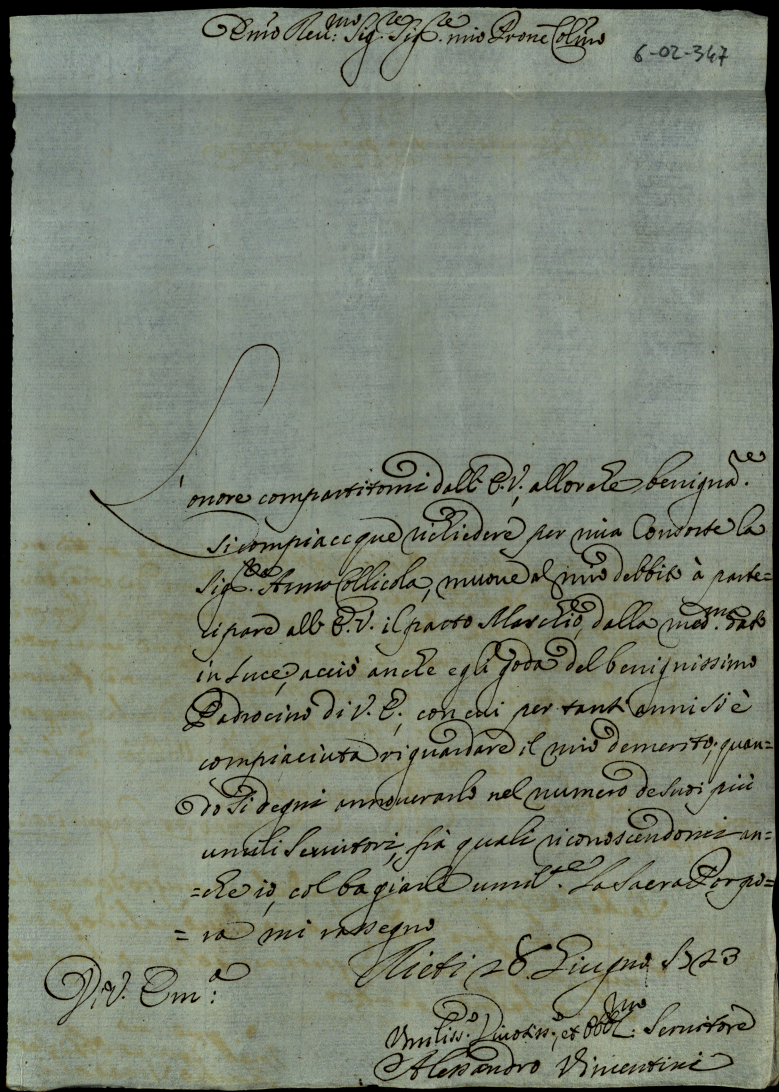 Emo Reu:mo Sig.re Sig.re mio Prone Colmo
6-02-347
L'onore compartitomi dall'E.V., allorche benignate.
si compiacque richiedere per mia Consorte la
Sig.ra Anna Collicola, muove al mio debbito à parte=
cipare all'E.V. il parto Maschio, dalla med.ma dato
in luce, acciò anche egli goda del benignissimo
Padrocinio di V.E., con cui per tanti anni si è
compiaciuta riguardare il mio demerito; quan=
do si degni annoverarlo nel numero de suoi più
umili Servitori, frà quali riconoscendomi an=
=che io, col bagiarle umilte. La Sacra Porpo=
=ra mi rassegno
Di V. Em:a
Rieti 28 Giugno 1723
Umiliss.o Divotiss.o, et Obbl:mo Servitore
Alessandro Vincentini